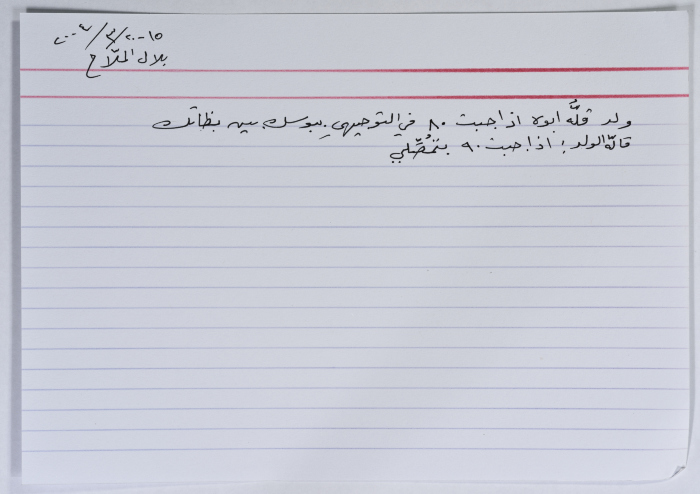 بلال الملاّح
ولد قلَّه ابوه اذا جبت ٨٠ في التوجيهي ببوسك بين بظاتك
قالّه الولد : اذا جبت ٩٠ بتمُصّلي